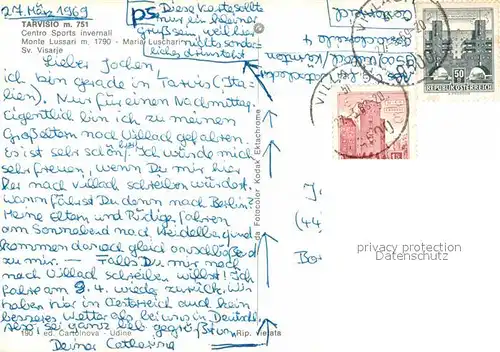 27. März 1969
TARVISIO m. 751
Centro Sports invernali
Monte Lussari m. 1790 - Maria Luschari
Sv. Visarje
ps) Diese Karte sollte
nur ein kleiner
Gruß sein weil hier
nichts sonder-
liches
Lieber Jochen!
ich bin gerade in Tarvis (Ita-
lien). Nur für einen Nachmittag.
eigentlich bin ich zu meinen
Großeltern nach Villach gefahren.
Es ist sehr schön hier! Ich würde mich
sehr freuen, wenn Du mir hier
her nach Villach schreiben würdest.
Wann fährst Du denn nach Berlin?
Meine Eltern und Rüdiger fahren
am Sonnabend nach Heidelberg und
kommen danach gleich anschließend
zu mir. — Falls Du mir noch
nach Villach schreiben willst! Ich
fahre am 9.4. wieder zurück. Wir
haben hier in Österreich auch kein
besseres Wetter als bei uns in Deutschl.
Also, sei ganz lieb gegrüßt von
Deiner Catharina
190 - ed. Cartolnova - Udine
Rip. vietata
da Fotocolor Kodak Ektachrome
VILLACH
50
REPUBLIK ÖSTERREICH
VILLACH
J.
(44
Bo
privacy protection
privacy protection